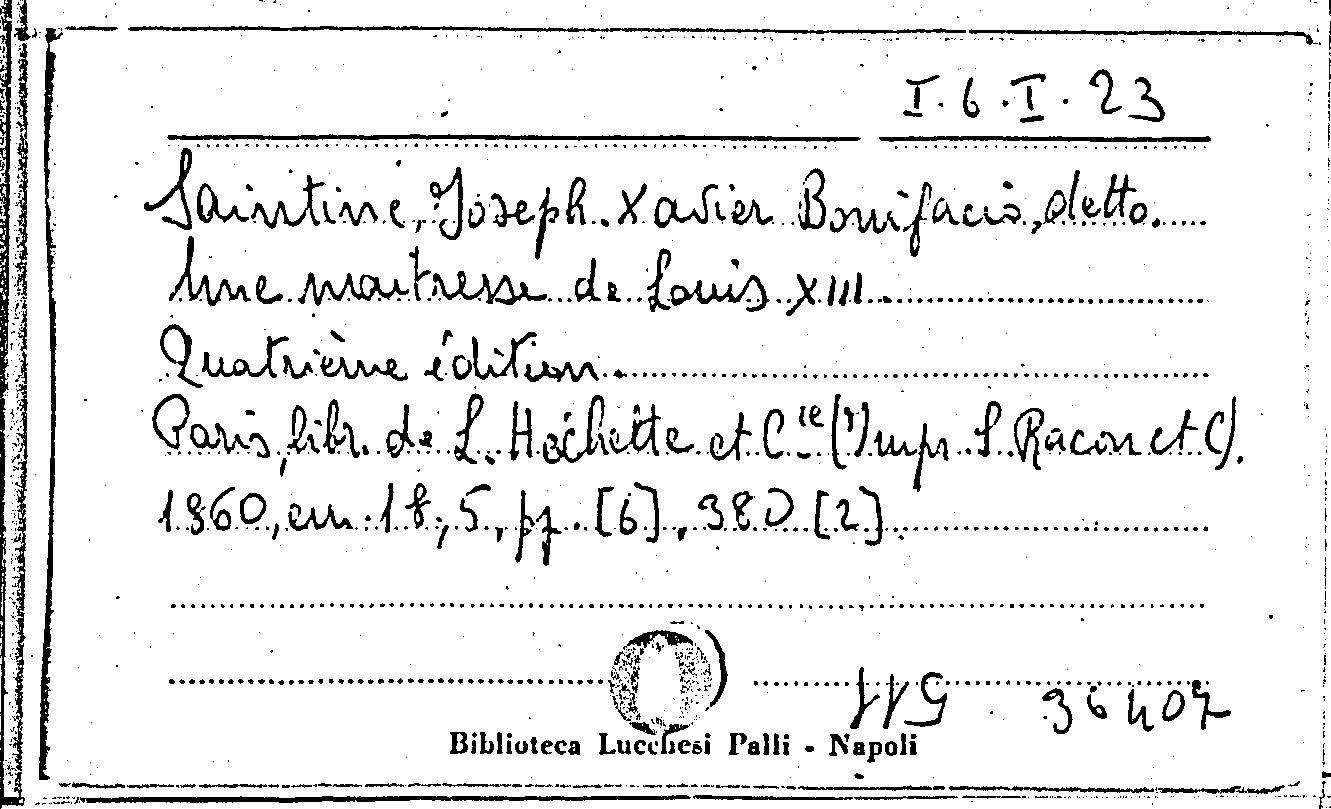 I. 6. I. 23
Saintine, Joseph Xavier Bonifacio, detto.
Une maitresse de Louis XIII.
Quatrième édition.
Paris, libr. de L. Hachette et C.ie (Impr. S. Racon et C).
1860, cm. 18,5, pp. [6], 380 [2].
36407
Biblioteca Lucchesi Palli - Napoli